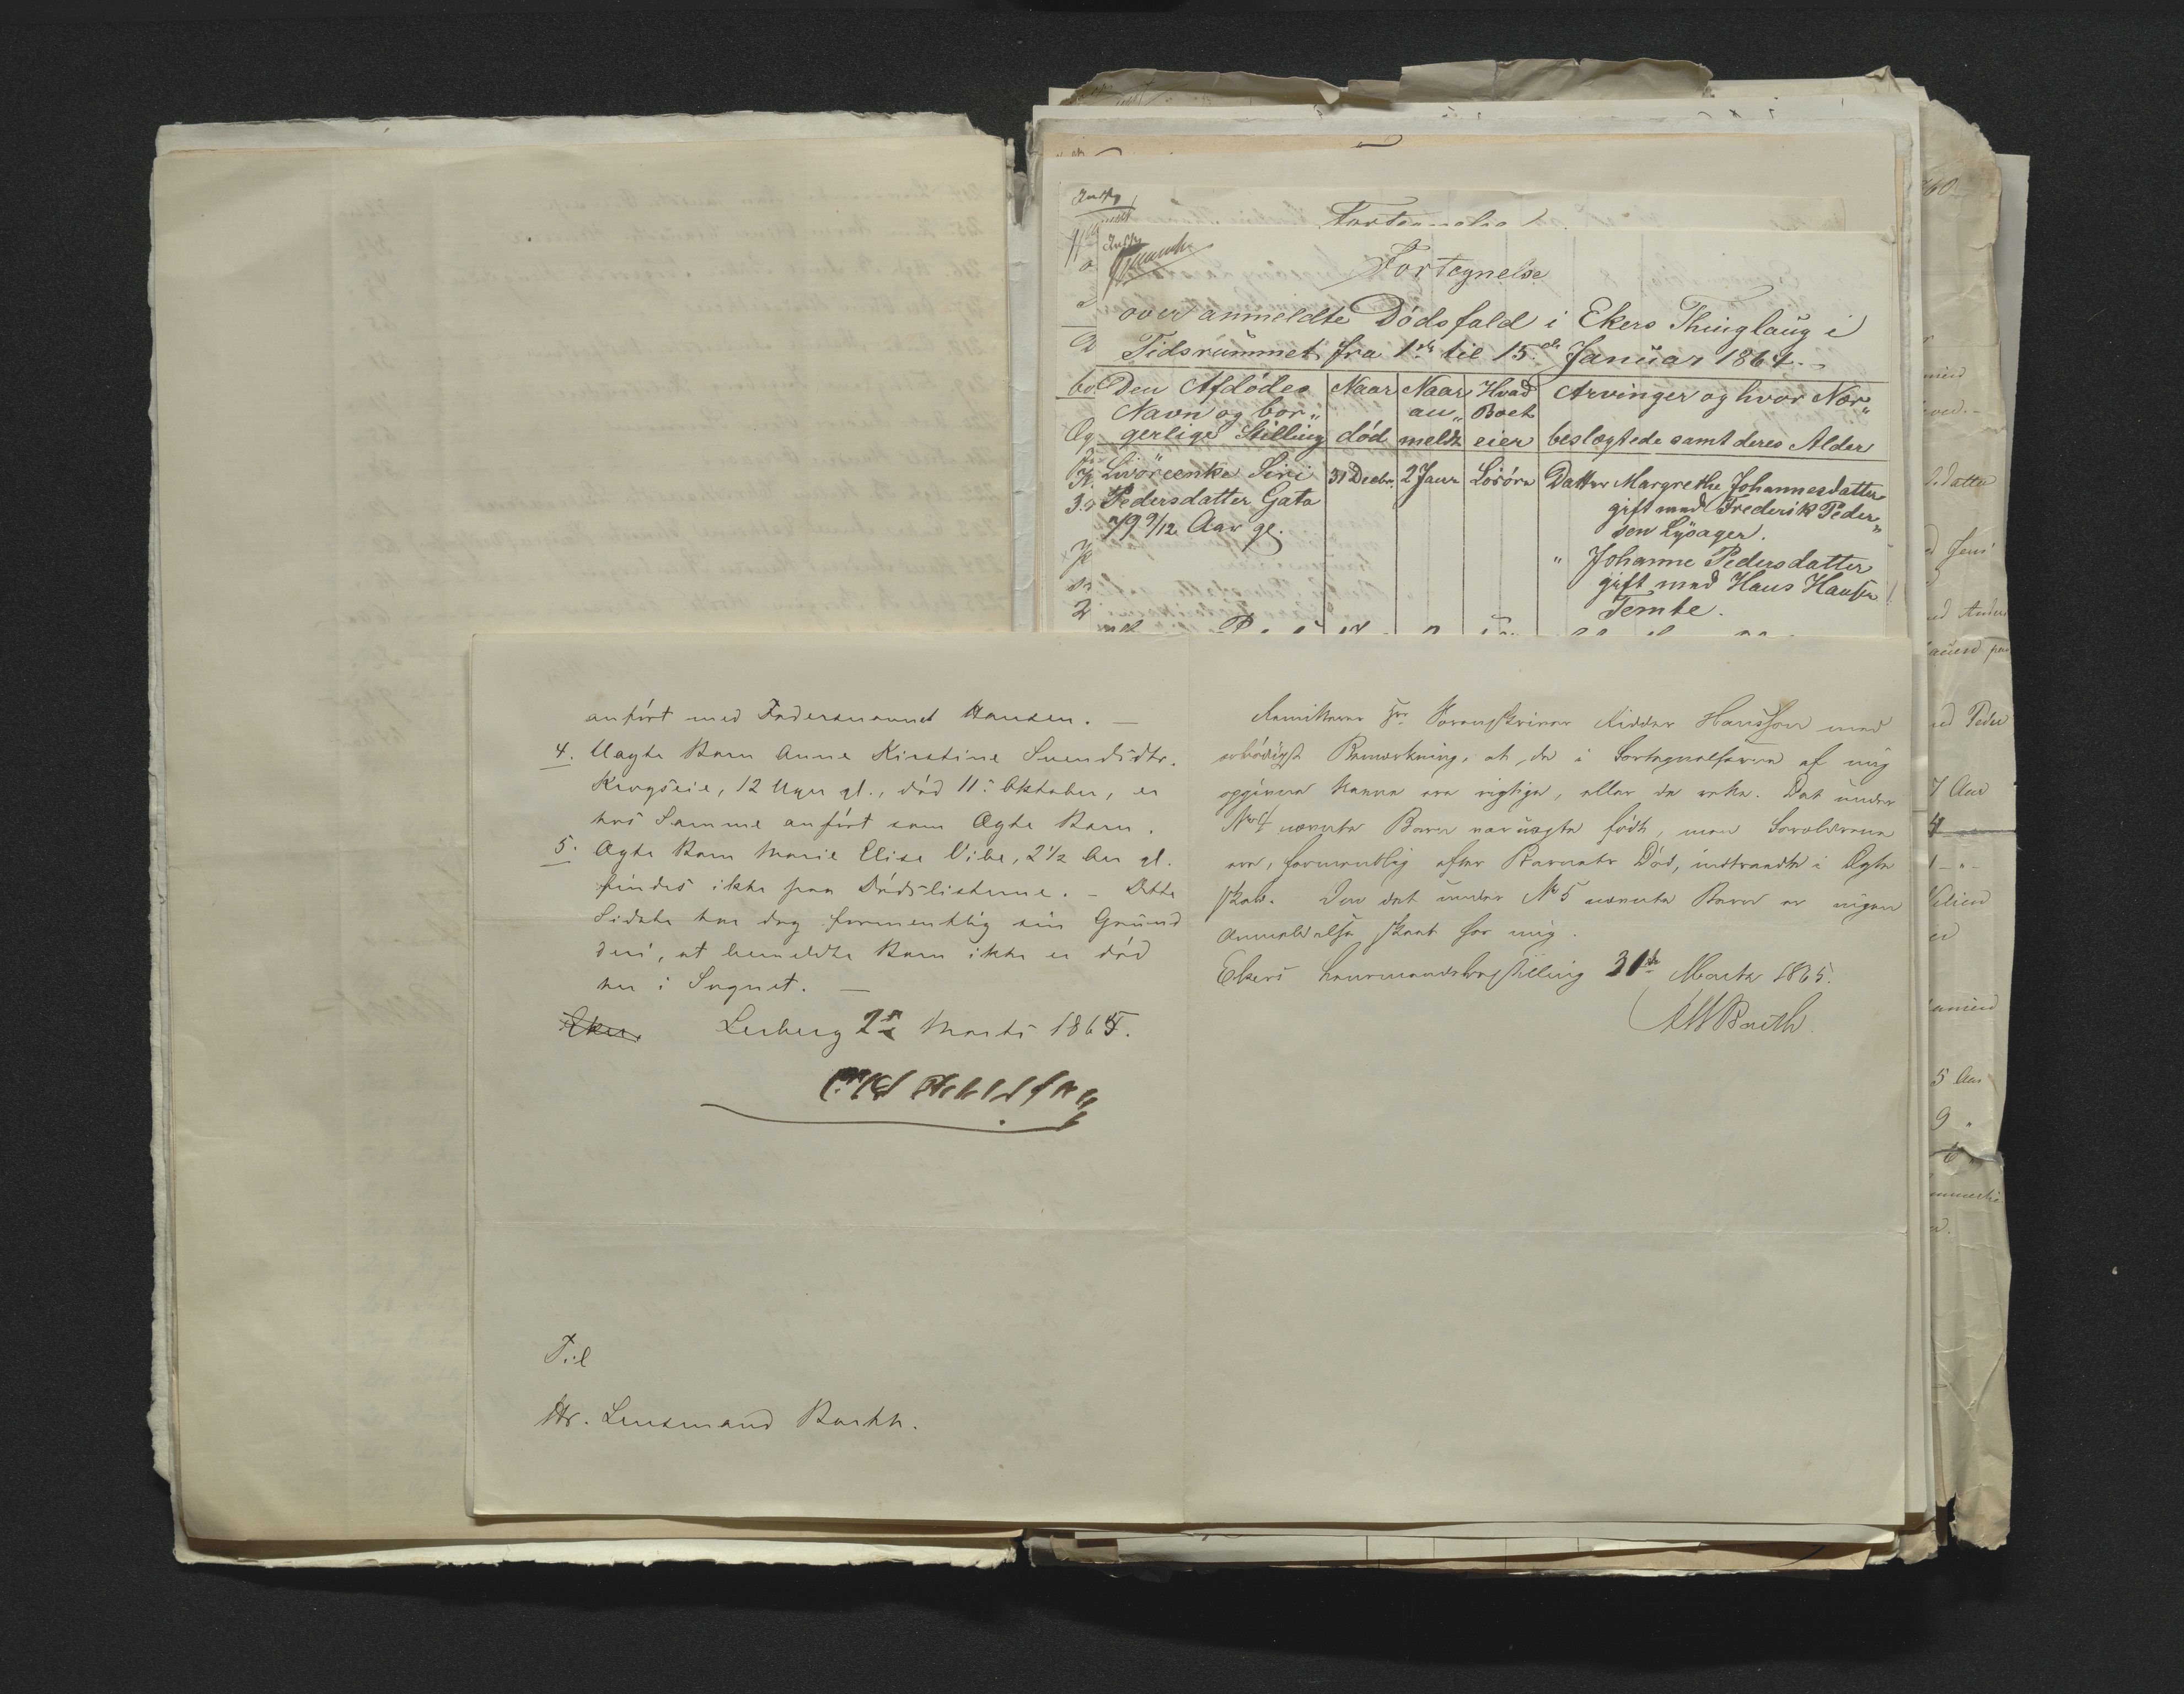 Fortegnelse
Fortegnelse
over anmeldte Dødsfald i Ekers Thinglaug i
Tidsrummet fra 1ste til 15de Januar 1864.
Den Afdødes
Navn og bor„
gerlige Stilling
Naar
død
Naar
an„
meldt
Hvad
Boet
eier
Arvinger og hvor Nær„
beslægtede samt deres Alder
Siri
Pedersdatter Gata
79 9/12 Aar gl.
31 Decbr.
2 Janr
Løsøre
Datter Margrethe Johannesdatter
gift med Frederik Peder„
sen Lysager.
" Johanne Pedersdatter
gift med Hans Hansen
Temte.
anført med Fadersnavnet Hansen. —
4. Uægte Barn Anne Kirstine Svendsdtr.
Krogseie, 12 Uger gl., død 11te Oktober, er
hos Samme anført som Ægte Barn.
5. Ægte Barn Marie Elise Vibe, 2½ Aar gl.
findes ikke paa Dødslisterne. — Dette
Sidste har dog formentlig sin Grund
deri, at bemeldte Barn ikke er død
her i Sognet. —
Eker. Lerberg 2den Marts 1865.
Til
Hr. Lensmand Barth.
Remitteres Hr. Sorenskriver Ridder Hansson med
ærbødigst Bemærkning, at de i Fortegnelserne af mig
opgivne Navne ere rigtige, eller de rette. Det under
No 4 nævnte Barn var uægte født, men Forældrene
ere, formentlig efter Barnets Død, indtraadte i Ægte
skab. Om det under No 5 nævnte Barn er ingen
Anmeldelse skeet for mig.
Ekers Lensmandsbestilling 31te Marts 1865.
Barth.